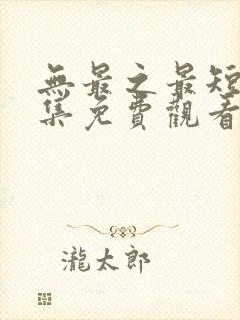 無最之最短
集免費觀看
瀧太郎